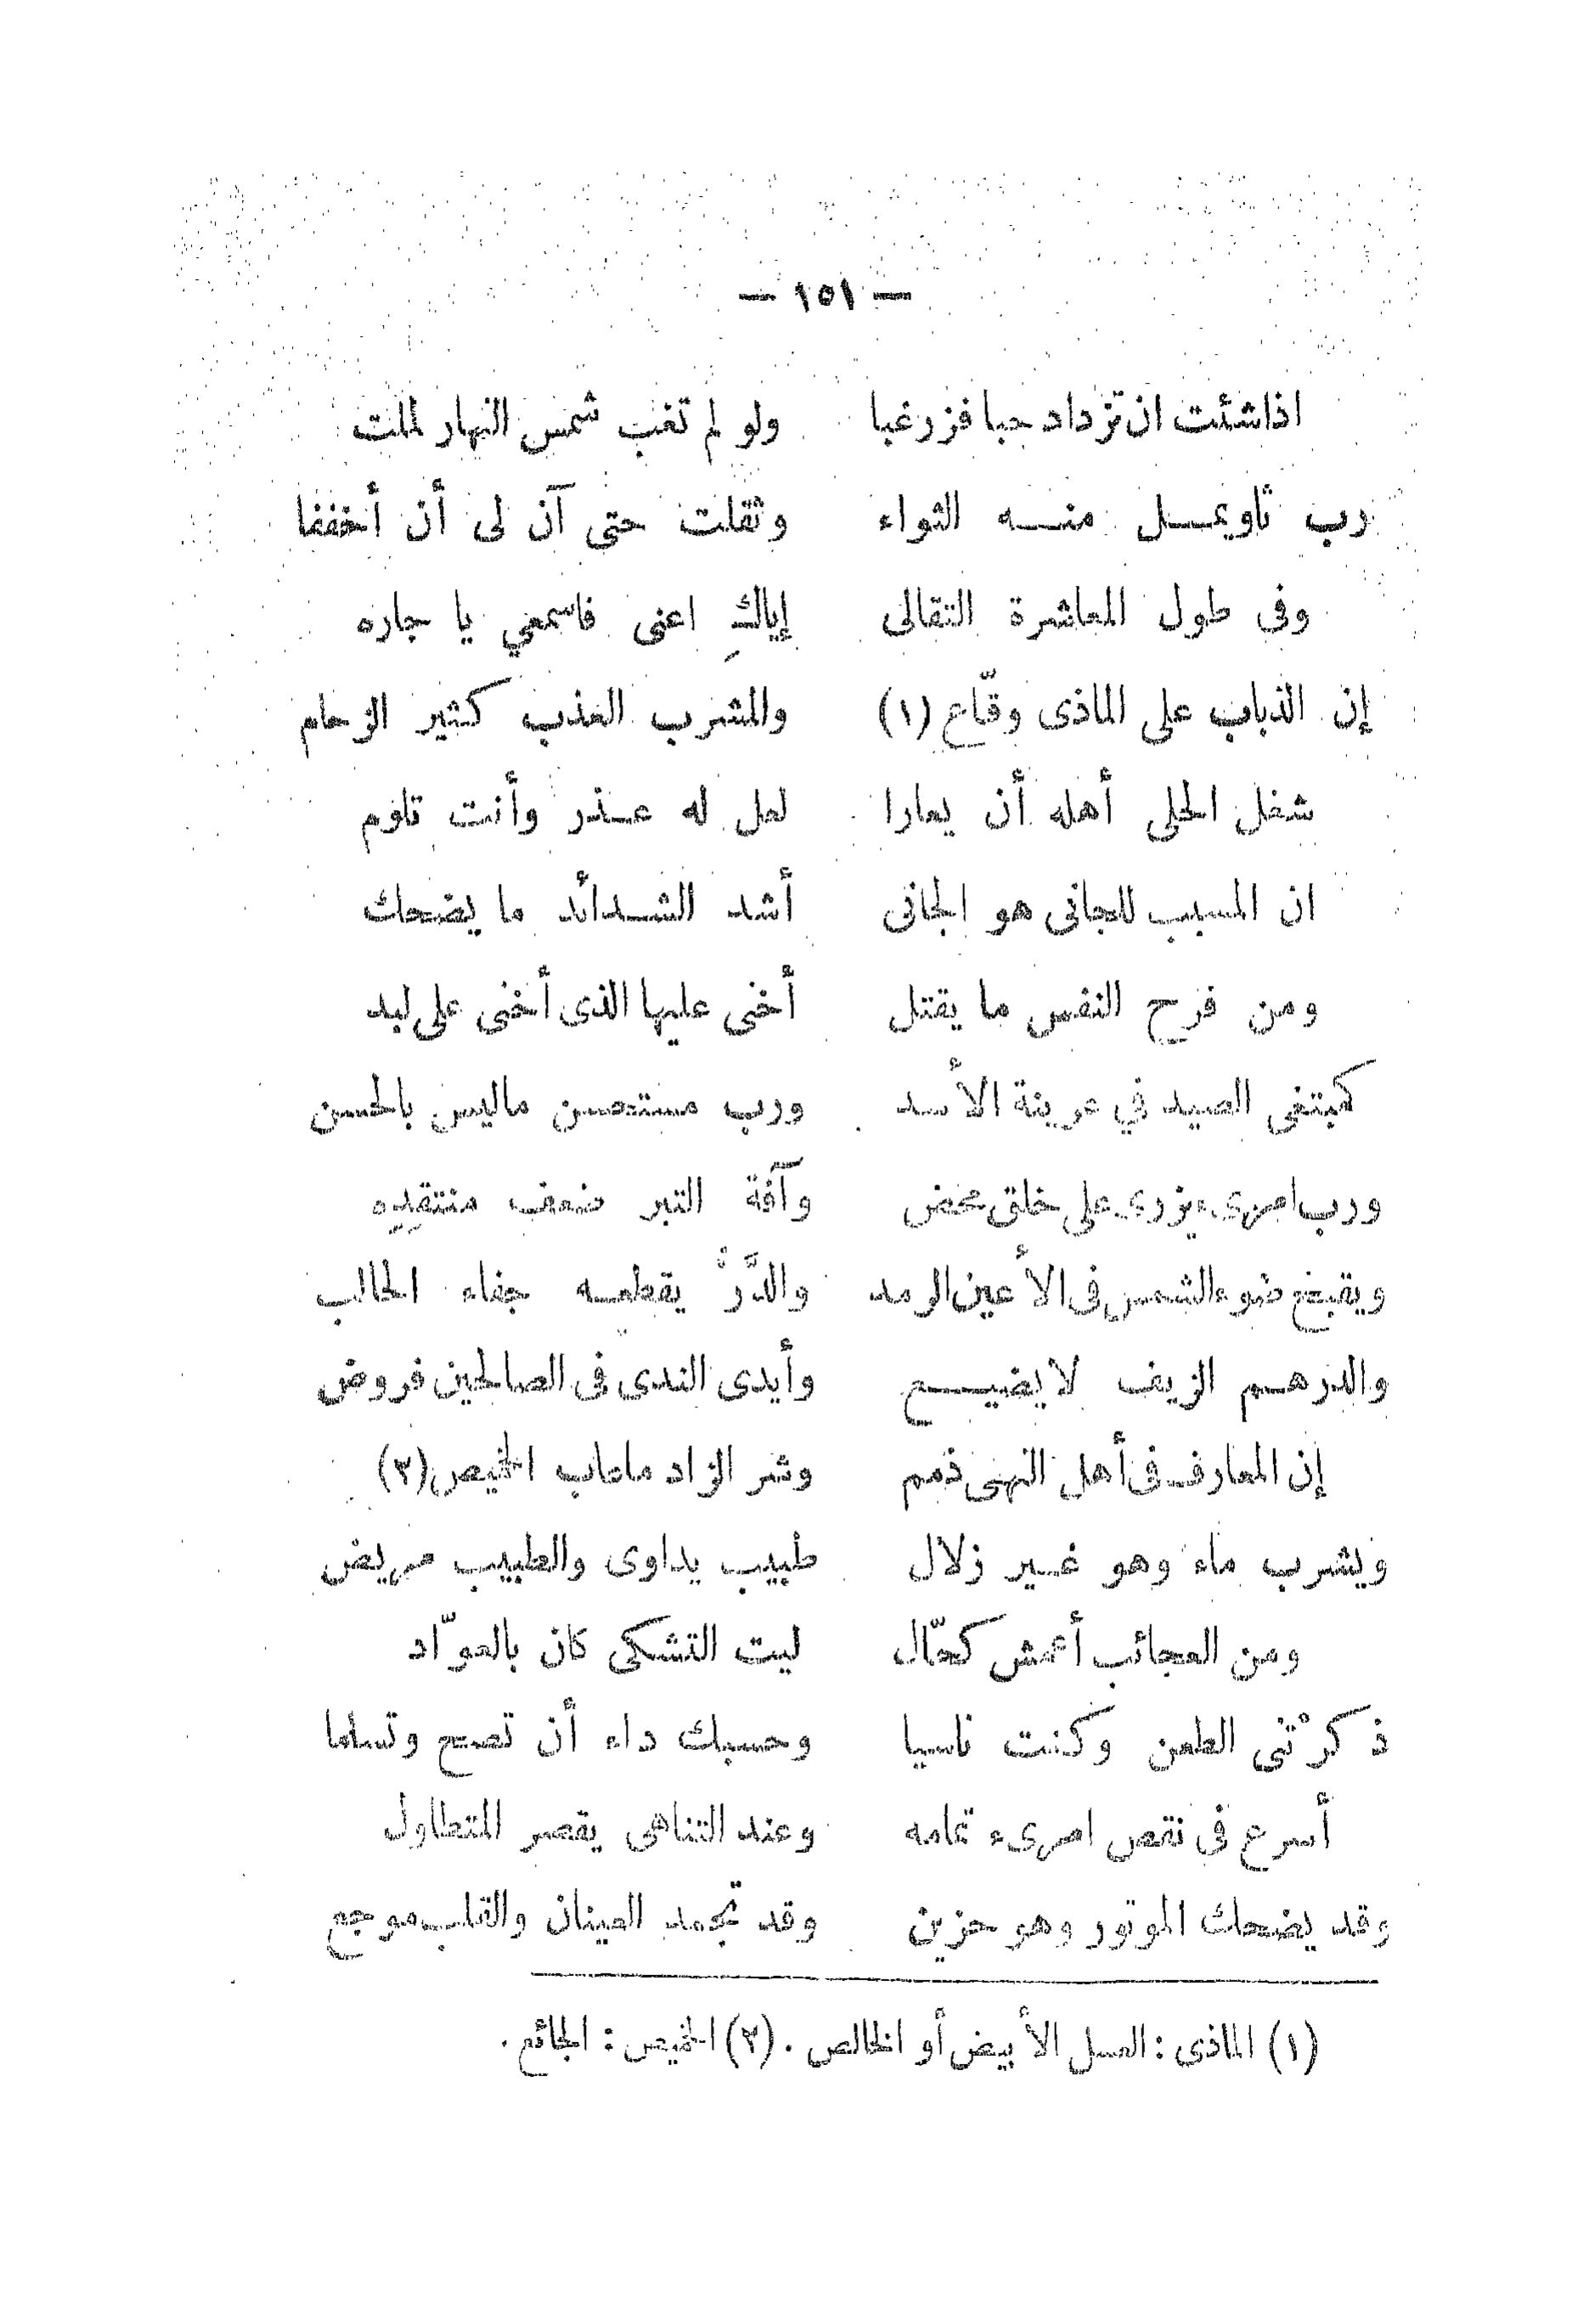 — ١٥١ —
اذا شئت ان تزداد حبا فزر غبا ولو لم تغب شمس النهار لملت
رب ثاو يمــل منــه الثواء وثقلت حتى آن لى أن أخففا
وفى طول المعاشرة التقالى إياكِ اعنى فاسمعي يا جاره
إن الذباب على الماذى وقّاع (١) والمشرب العذب كثير الزحام
شغل الحلى أهله أن يعارا لعل له عــذر وأنت تلوم
ان المسبب للجانى هو الجانى أشد الشــدائد ما يضحك
ومن فرح النفس ما يقتل أخنى عليها الذى أخنى على لبد
كمبتغى الصيد في عرينة الأسد ورب مستحسن ماليس بالحسن
ورب امرىء يزرى على خلق محض وآفة التبر ضعف منتقدِه
ويقبح ضوء الشمس فى الأعين الرمد والدَّرْ يقطعــه جفاء الحالب
والدرهــم الزيف لا يضيــع وأيدى الندى فى الصالحين فروض
إن المعارف فى أهل النهى ذمم وشر الزاد ماعاب الخميص (٢)
ويشرب ماء وهو غــير زلال طبيب يداوى والطبيب مريض
ومن العجائب أعمش كحّال ليت التشكى كان بالعوّاد
ذكرْتنى الطعن وكنت ناسيا وحسبك داء أن تصح وتسلما
أسرع فى نقص امرىء تمامه وعند التناهى يقصر المتطاول
وقد يضحك الموتور وهو حزين وقد تجمد العينان والقلب موجع
(١) الماذى : العسل الأبيض أو الخالص . (٢) الخميص : الجائع .